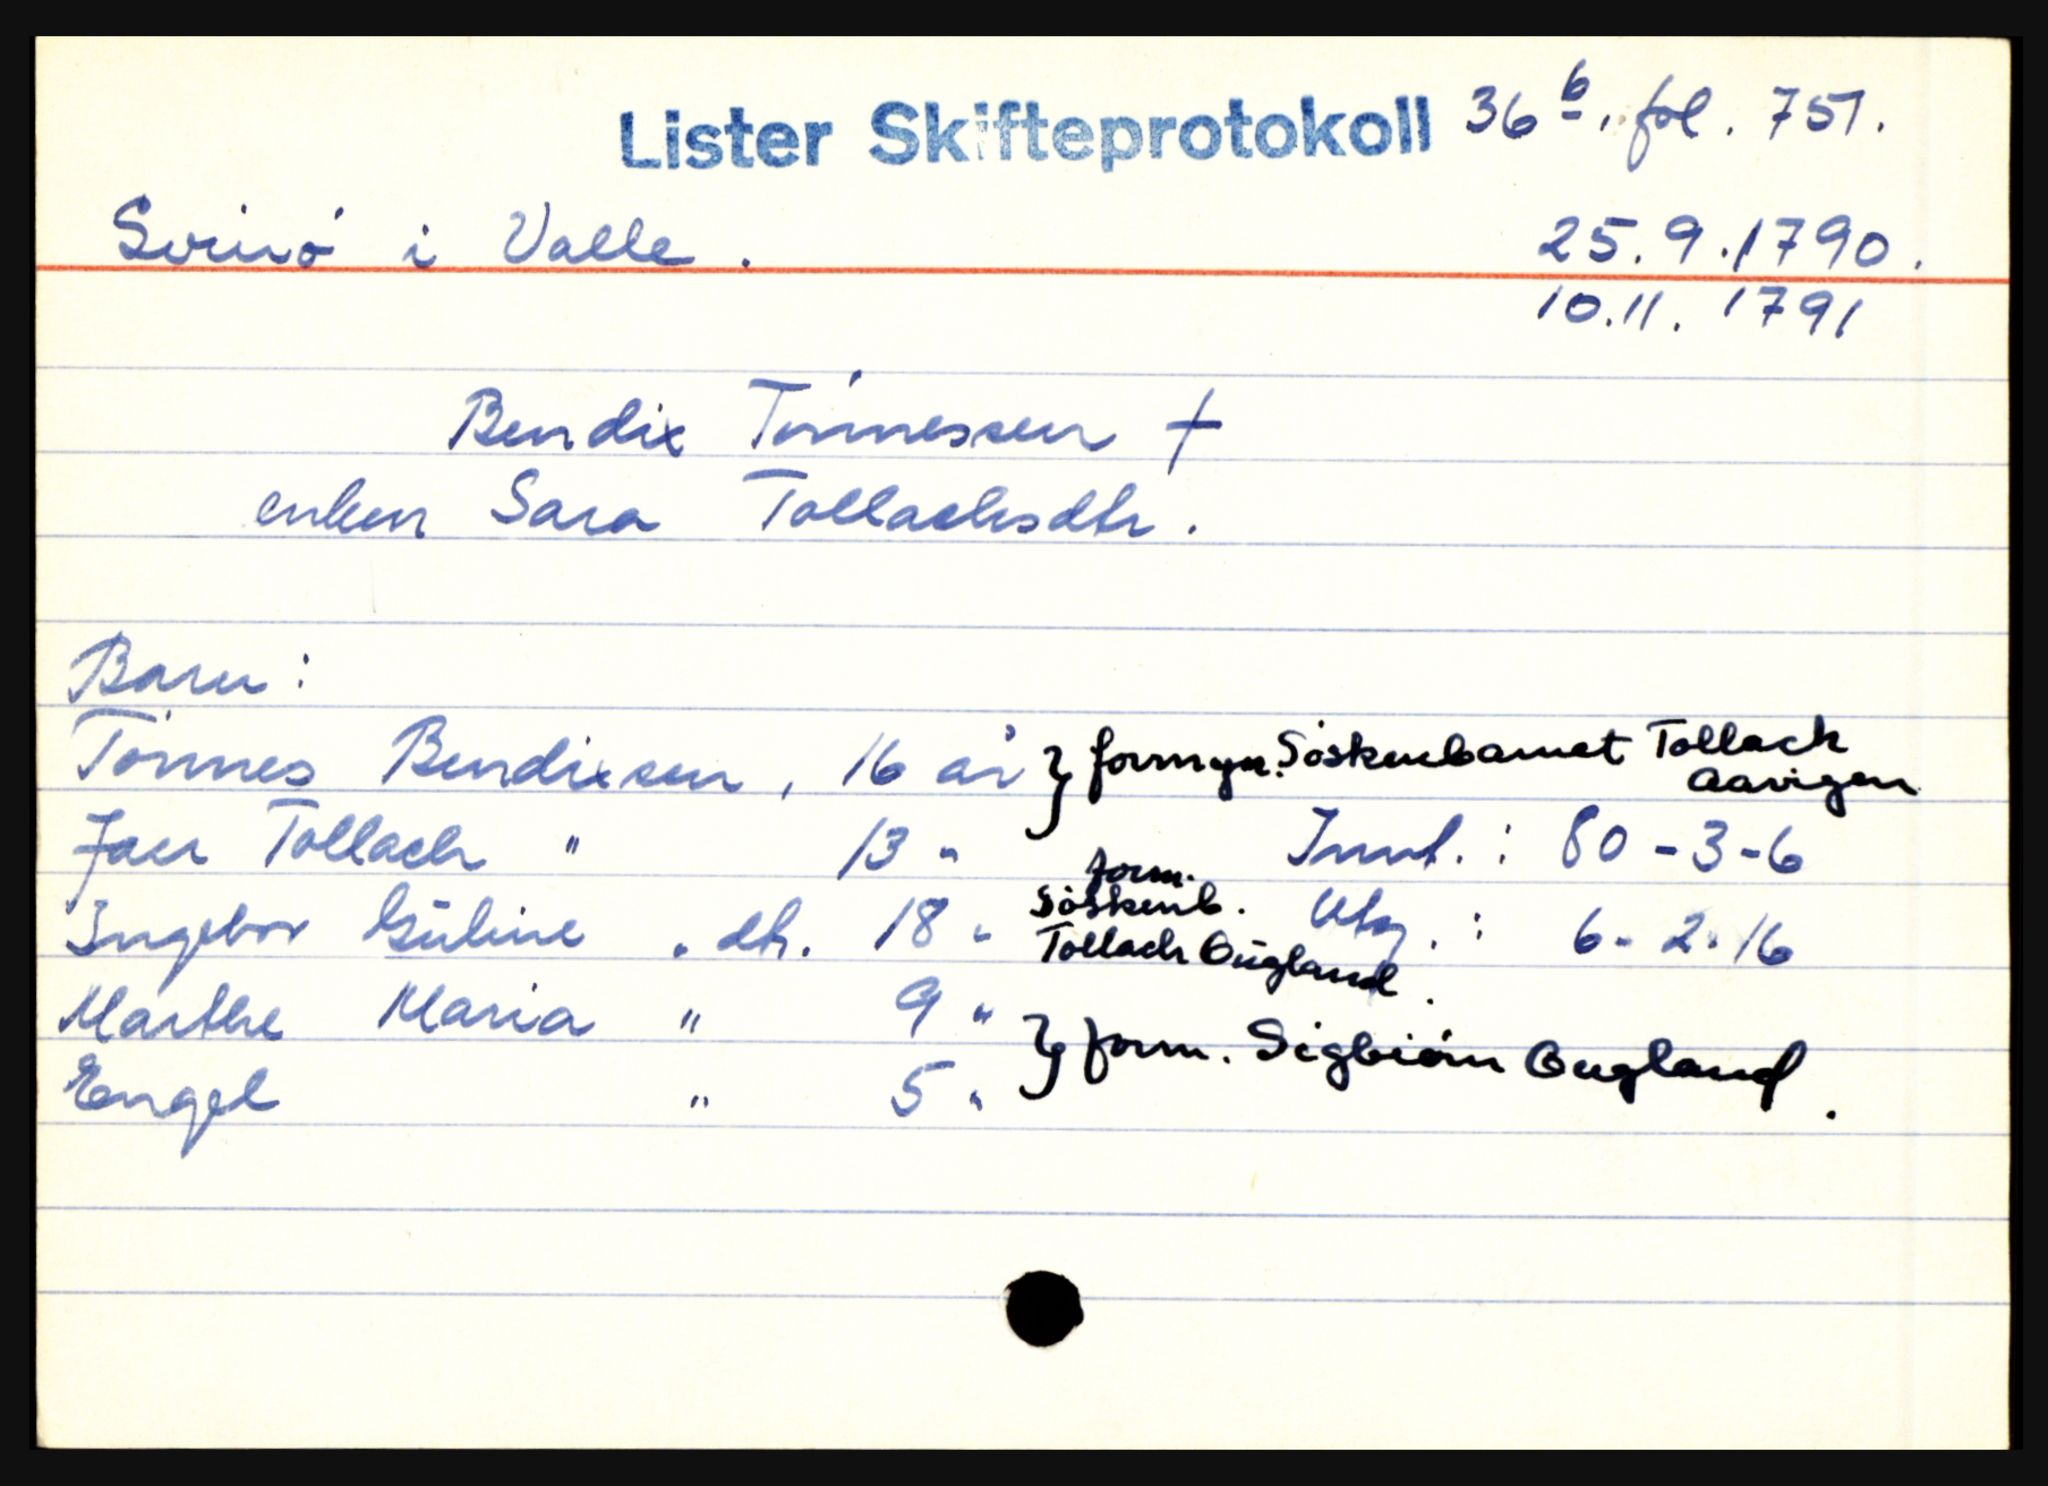 Lister Skifteprotokoll 36 b, fol. 751.
Svinö i Valle. 25.9.1790.
10.11.1791
Bendix Tönnessen †
enken Sara Tollachsdtr.
Barn:
Tönnes Bendixsen, 16 år } formyn. Söskenbarnet Tollach
Aavigen
Jan Tollach " 13 " Innt.: 80-3-6
form.
Söskenb.
Ingebor Güline " dtr. 18 " Utg.: 6-2-16
Tollach Öugland.
Marthe Maria " 9 "
} form. Sigbiörn Öugland.
Engel " 5 "